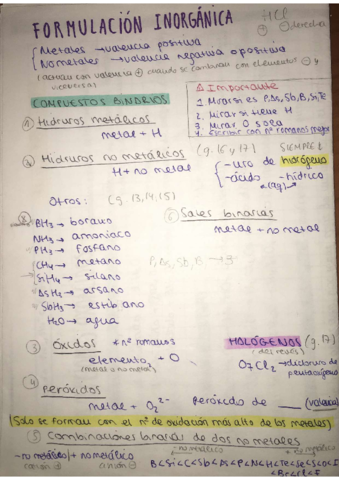 FORMULACIÓN INORGÁNICA
HCl
⊖ derecha
Metales → valencia positiva
No metales → valencia negativa o positiva
(actúan con valencia ⊕ cuando se combinan con elementos ⊖ y viceversa)
COMPUESTOS BINARIOS
⚠ Importante
2. Mirar si tiene H
3. Mirar O sola
4. Escribir con nº romanos mejor
① Hidruros metálicos
metal + H
② Hidruros no metálicos (g. 16 y 17)
H + no metal
SIEMPRE 1
- uro de hidrógeno
- ácido - hídrico
(aq)
Otros: (g. 13, 14, 15)
BH₃ → borano
NH₃ → amoniaco
PH₃ → fosfano
CH₄ → metano
SiH₄ → silano
AsH₃ → arsano
SbH₃ → estibano
H₂O → agua
Sales binarias
metal + no metal
P, Bs, Sb, B → 3
③ Óxidos * nº romanos
elemento₂ + O
(metal o no metal)
HALÓGENOS (g. 17)
(del revés)
O₇Cl₂ → dicloruro de pentaoxígeno
④ Peróxidos
metal + O₂²⁻ peróxido de ___ (valencia)
(Solo se forman con el nº de oxidación más alto de los metales)
⑤ Combinaciones binarias de dos no metales
- no metálico
+ no metálico
- no metálico + no metálico
catión ⊕ anión ⊖
B<Si<C<Sb<As<P<N<H<Te<Se<S<O<I
<Br<Cl<F